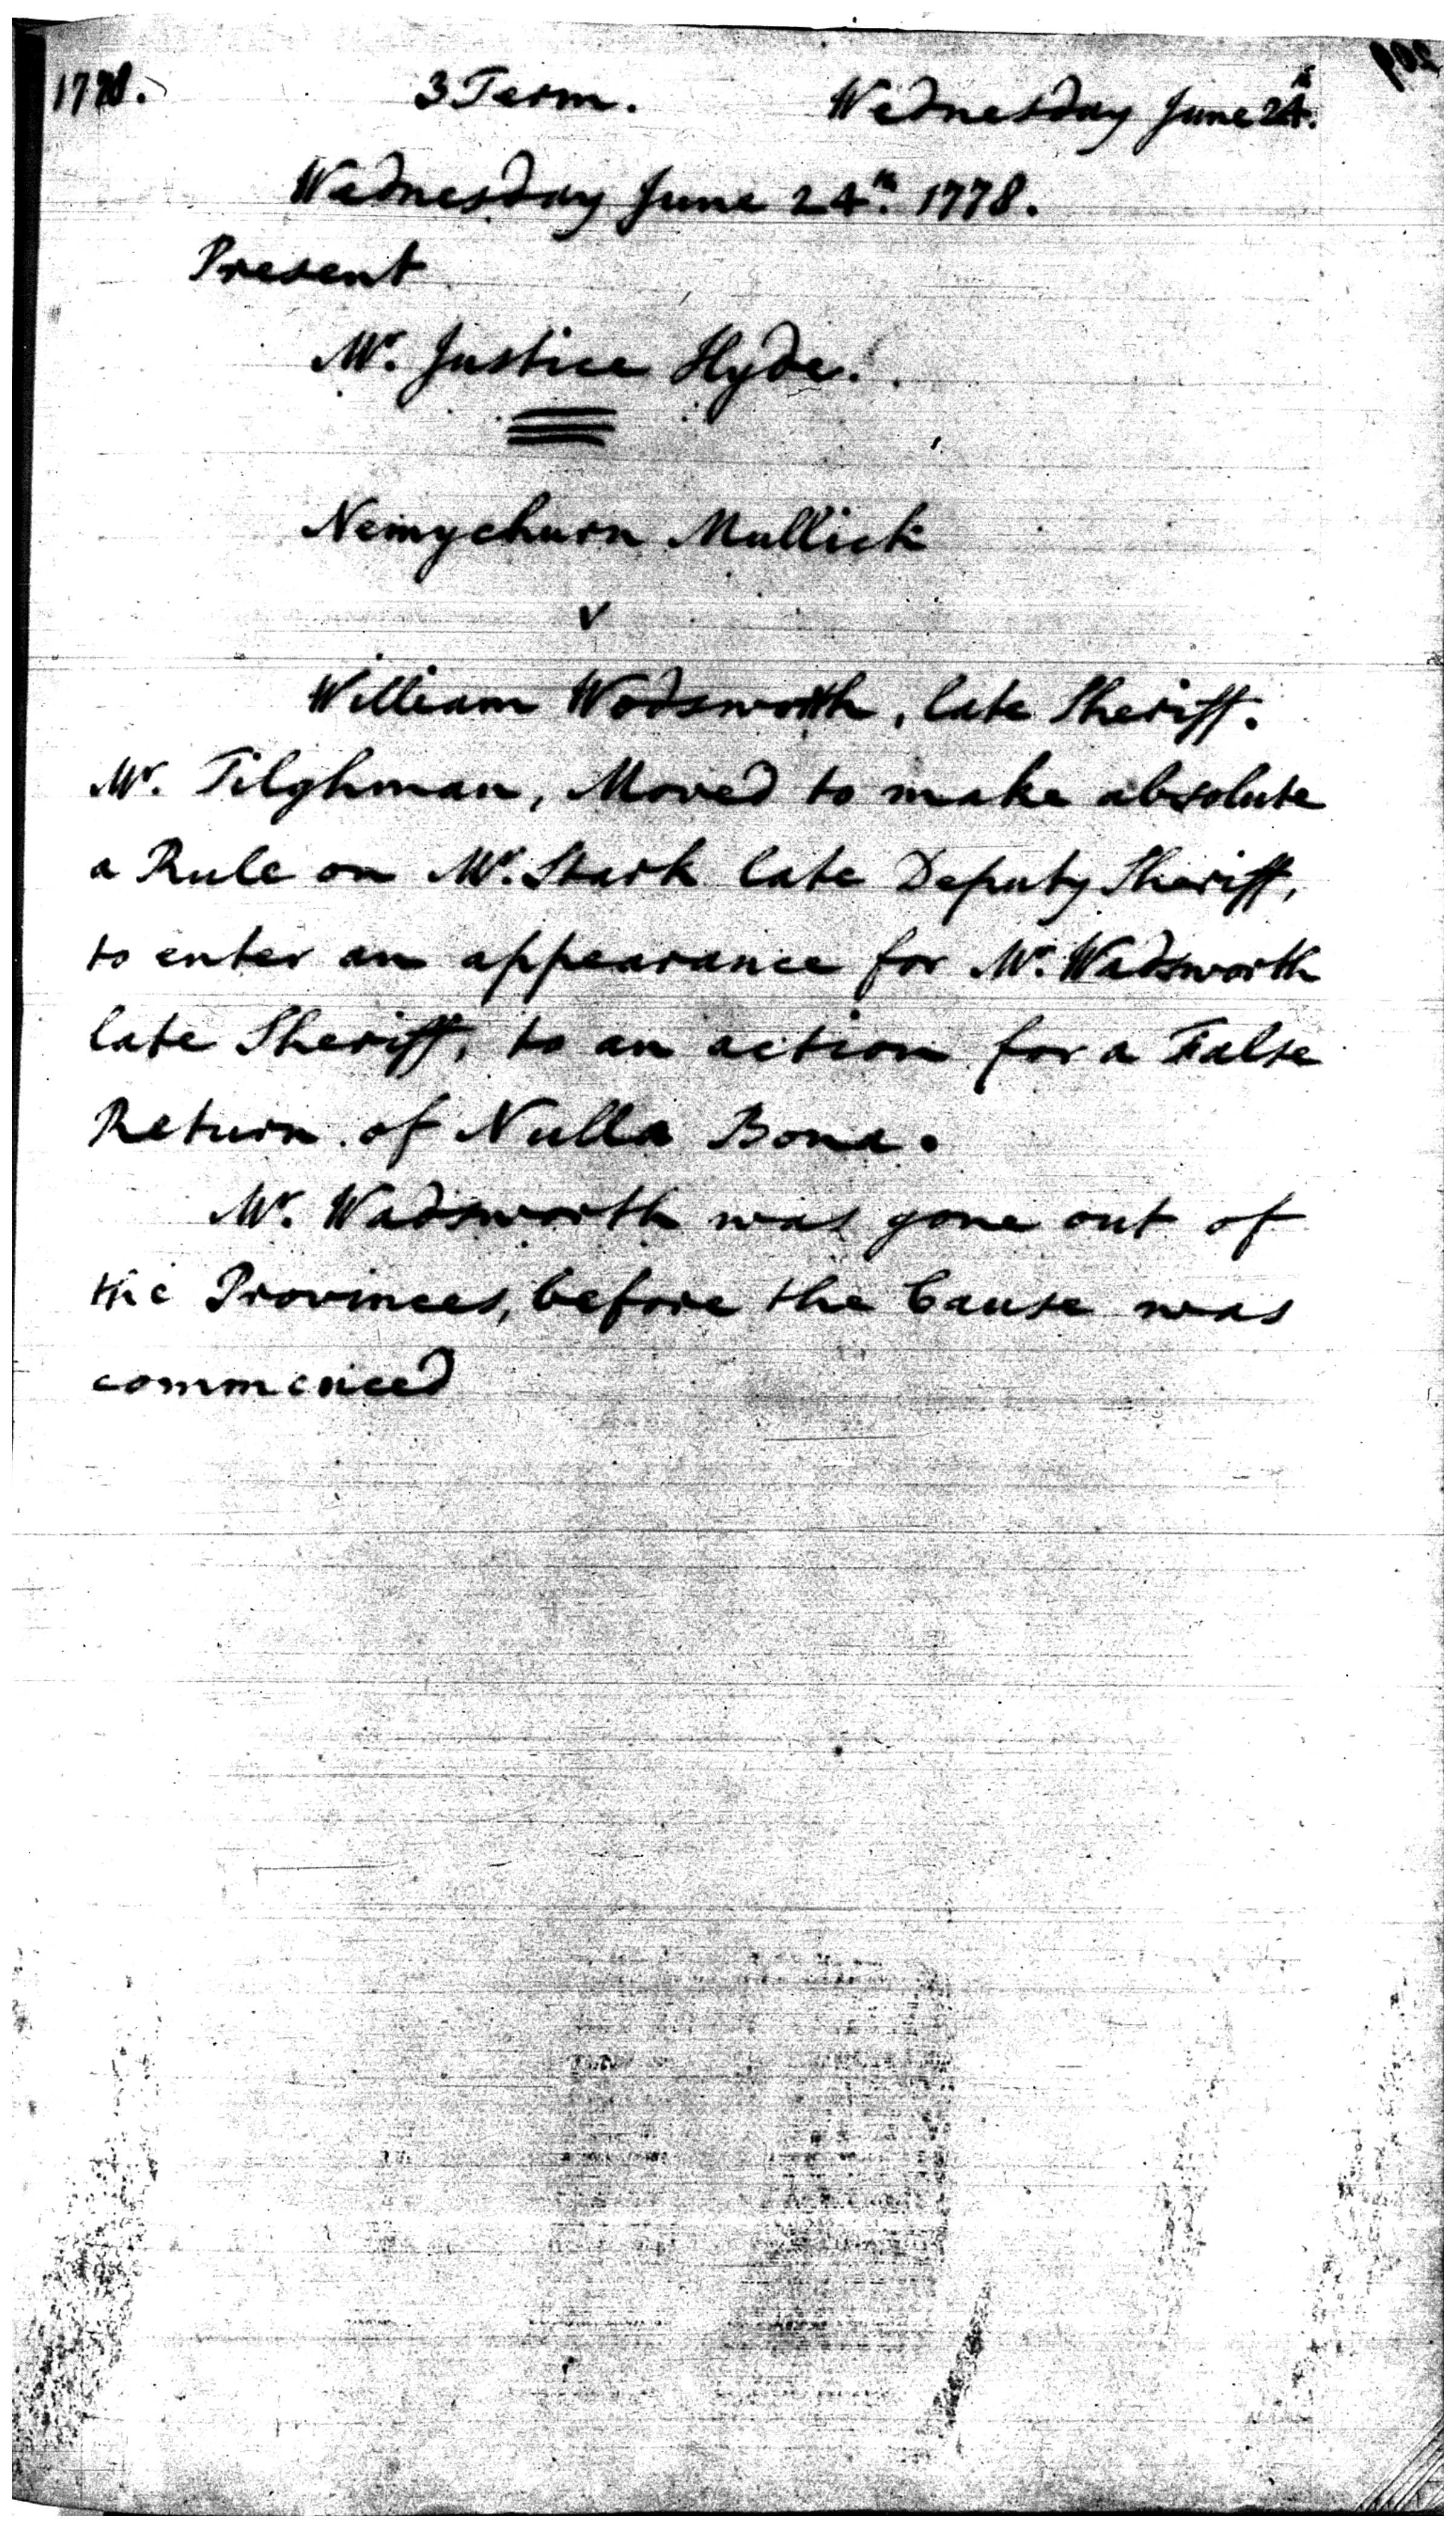 1778. 3 Term. Wednesday June 24th.
Wednesday June 24th. 1778.
Present
Mr. Justice Hyde.
Nemychurn Mullick
v
William Wodsworth, late Sheriff.
Mr. Tilghman, Moved to make absolute
a Rule on Mr. Stark late Deputy Sheriff,
to enter an appearance for Mr. Wadsworth
late Sheriff, to an action for a False
Return of Nulla Bona.
Mr. Wadsworth was gone out of
the Provinces, before the Cause was
commenced